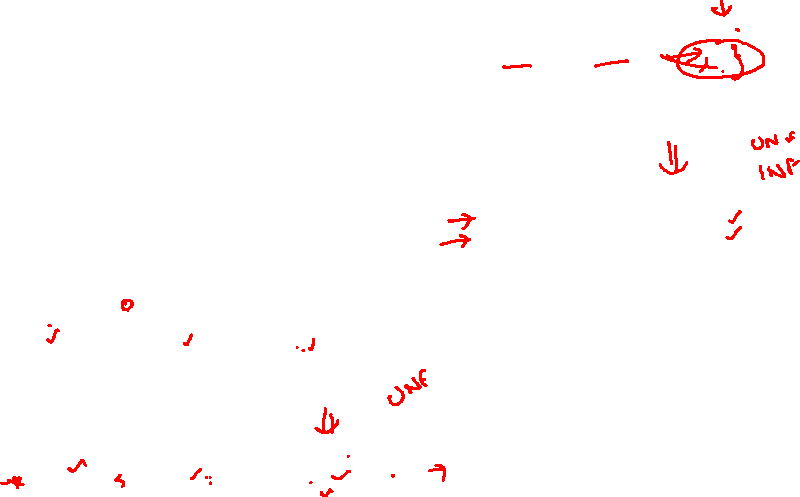 UNF
INF
UNF